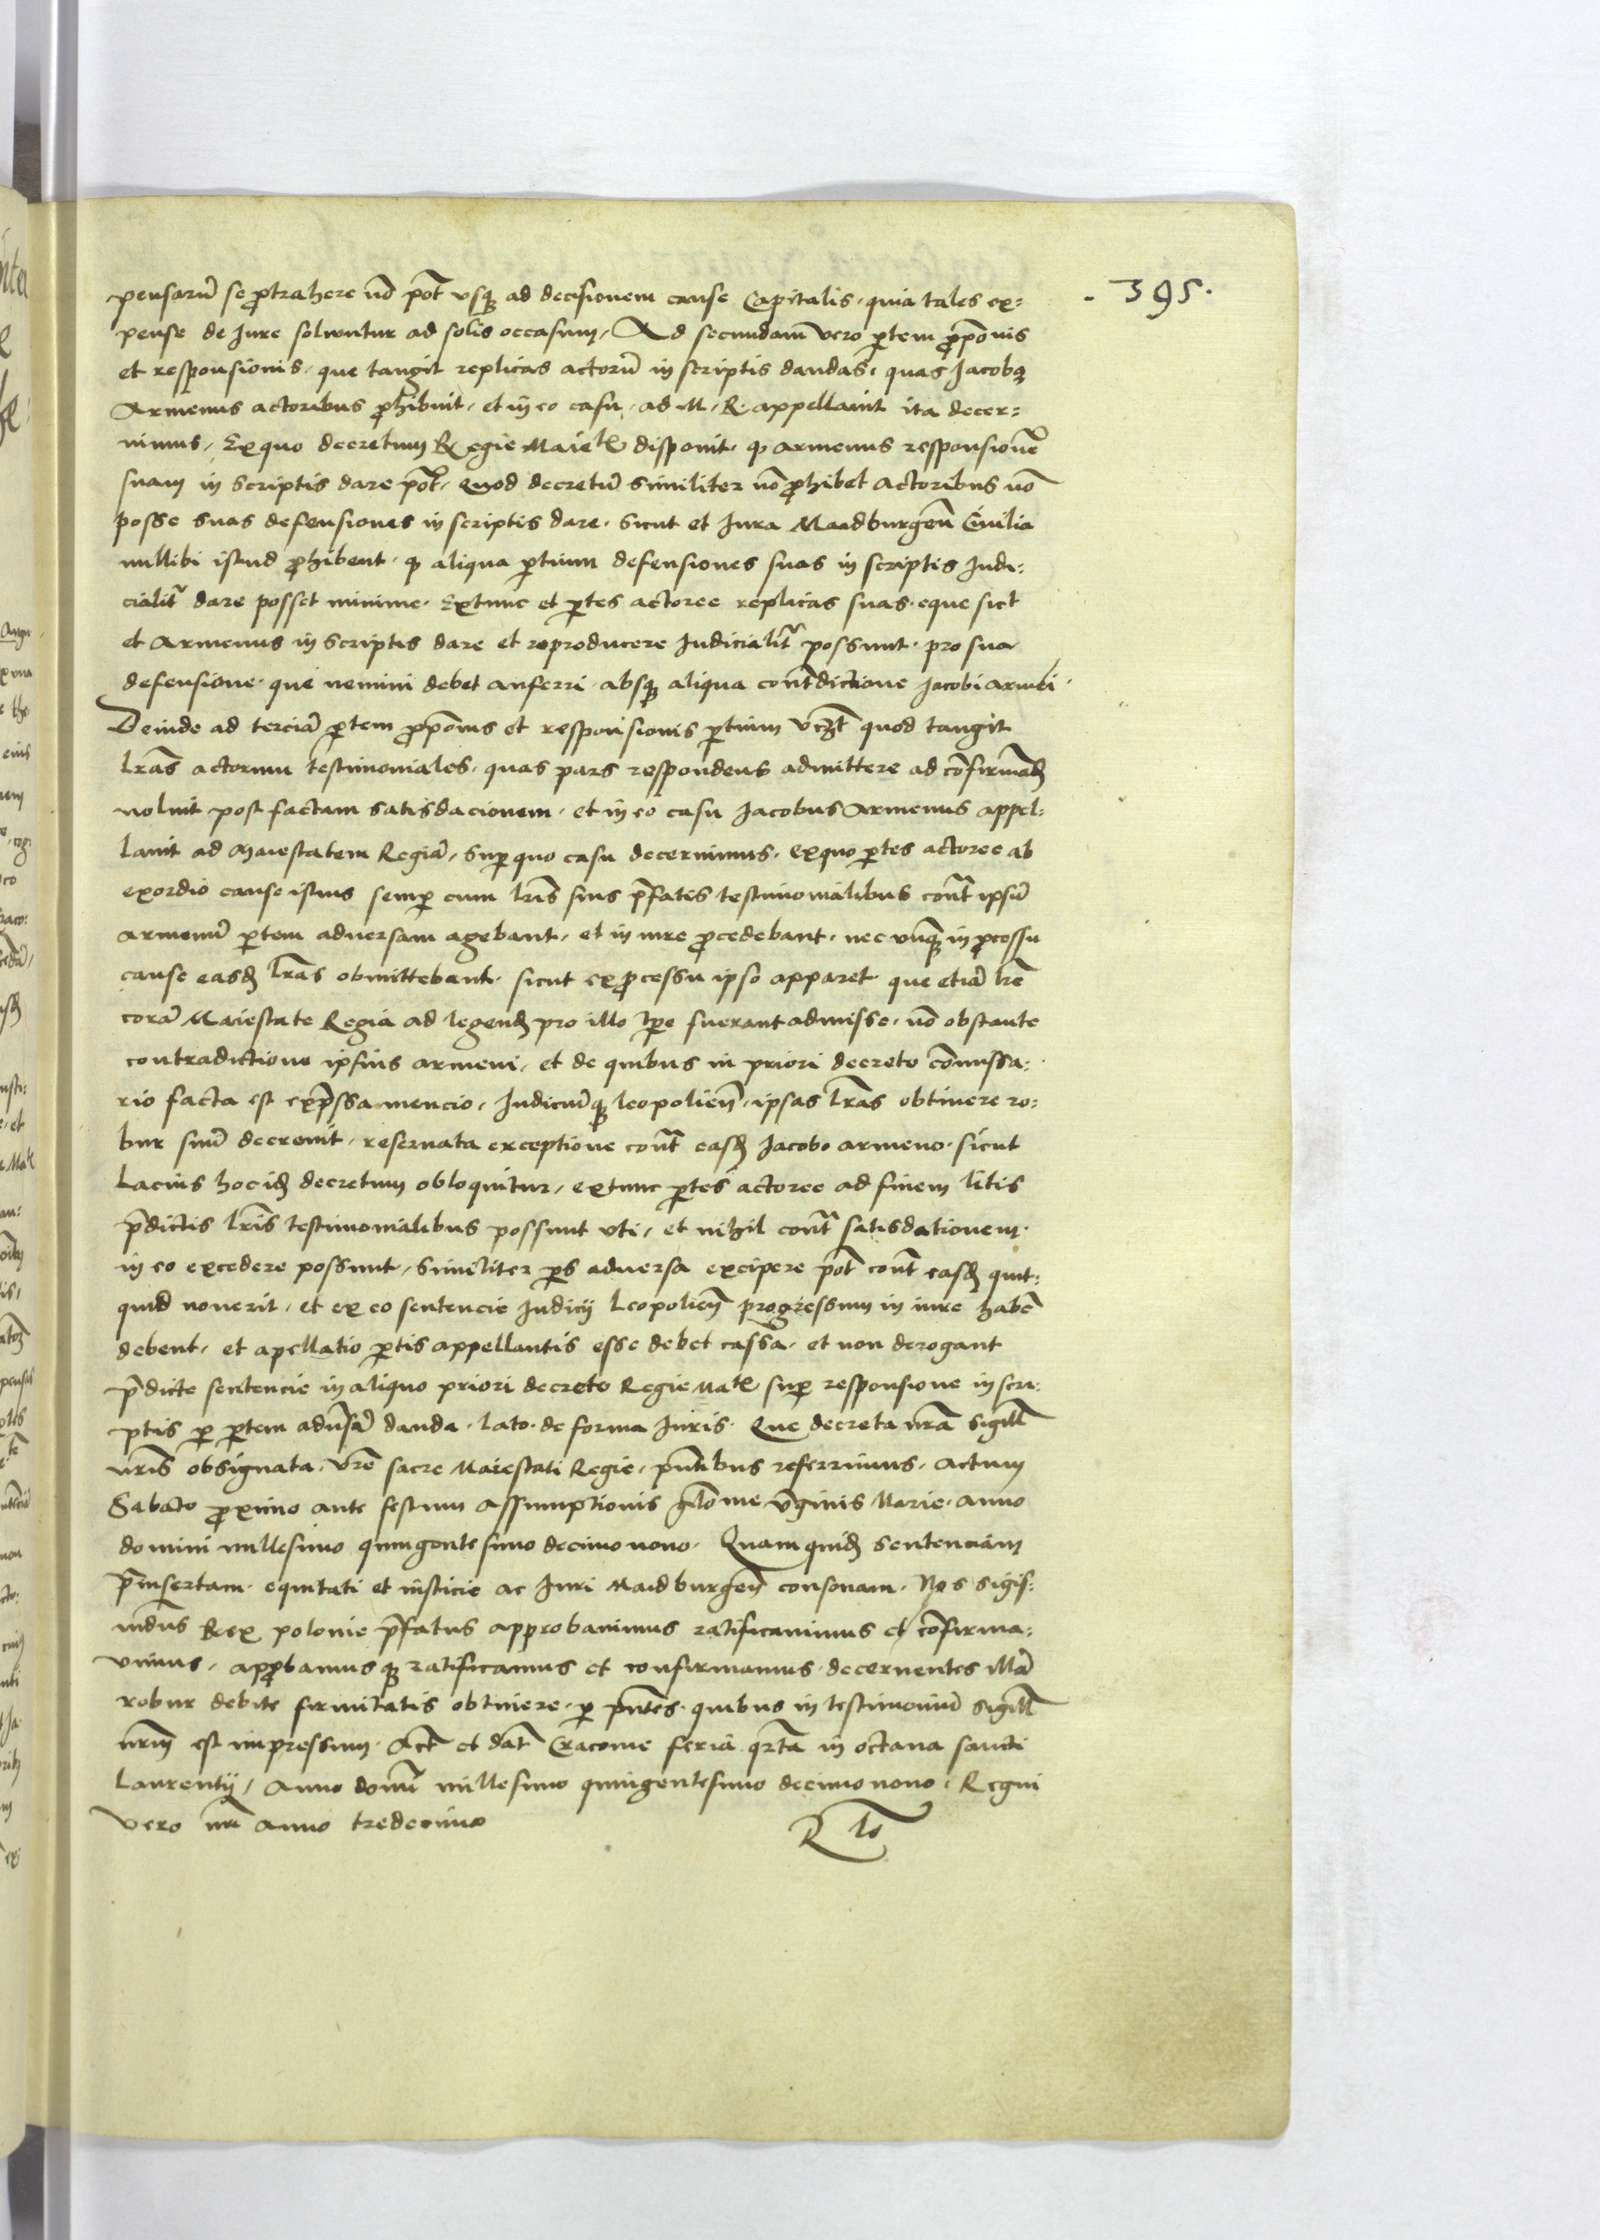 . 395 .
pensarũ se ꝓtrahere nõ põt vsqȝ ad decisionem cause Capitalis, quia tales ex=
pense de Jure soluuntur ad solis occasum, Ad secundam vero ꝑtem ꝓpõnis
et responsionis, que tangit replicas actorũ in scriptis dandas, quas Jacobꝯ
Armenus actoribus ꝓhibuit, et in eo casu, ad M. R. appellauit ita decer=
nimus, Ex quo decretum Regie Maiêtis disponit, ꝙ armenus responsionẽ
suam in scriptis dare põt, Quod decretũ similiter nõ ꝓhibet Actoribus nõ
posse suas defensiones in scriptis dare, sicut et Jura Maadburgeñ Ciuilia
nullibi istud ꝓhibent, ꝙ aliqua ꝑtium defensiones suas in scriptis Judi=
cialitr dare posset minime. Extunc et ꝑtes actoree replicas suas, eque sict
et Armenus in scriptis dare et reproducere Judicialitr possunt, pro sua
defensione, que nemini debet anferri, absqȝ aliqua contdictione Jacobi armẽi.
Deinde ad terciã ꝑtem ꝓpõnis et responsionis ꝑtium vcȝt quod tangit
lrãs actorum testimoniales, quas pars respondens admittere ad cõfirmadȝ
noluit post factam satisdacionem, et in eo casu Jacobus Armenus appel=
lauit ad Maiestatem Regiã, Suꝑ quo casu decernimus, ex quo ꝑtes actoree ab
exordio cause istius semꝑ cum lrĩs suis p̃fatis testimonialibus cont ipsũ
armenũ ꝑtem aduersam agebant, et in iure ꝓcedebant, nec vnqȝ in ꝓcessu
cause easdȝ lrãs obmittebant, sicut ex ꝓcessu ipso apparet que etiã lrẽ
corã Maiestate Regia ad legendȝ pro illo tꝑe fuerant admisse, nõ obstante
contradictione ipsius armeni, et de quibus in priori decreto cõmissa=
rio facta est exp̃ssa mencio, Judiciũqȝ leopolieñ, ipsas lrãs obtinere ro=
bur suũ decreuit, reseruata exceptione cont easdȝ Jacobo armeno, sicut
Lacius hoc idȝ decretum obloquitur, extunc ꝑtes actoree ad finem litis
p̃dictis lrĩs testimonialibus possunt vti, et nihil cont satisdationem
in eo excedere possunt, Similiter ꝑs aduersa excipere põt cont easdȝ quit=
quid nouerit, et ex eo sentencie Judicij Leopolieñ progressum in iure habẽ
debent, et apellatio ꝑtis appellantis esse debet cassa, et non derogant
p̃dicte sentencie in aliquo priori decreto Regie Matis suꝑ responsione in scri=
ptis ꝑ ꝑtem adũsã danda, lato, de forma Juris. Que decreta nrã sigill
nrĩs obsignata, Vrẽ sacre Maiestati Regie, pñtibus referrimus, actum
Sabato ꝓximo ante festum assumptionis glõiose v̾ginis Marie, anno
domini millesimo quingentesimo decimo nono. Quam quidȝ sentenciam
p̃insertam, equitati et iusticie ac Juri Maidburgeñ consonam, Nos sigis=
mũdus Rex polonie p̃fatus approbauimus ratificauimus et cõfirma=
uimus, apꝓbamusqȝ ratificamus et confirmamus, decernentes illã
robur debite firmitatis obtinere, ꝑ pñtes, quibus in testimoniũ sigill
nrũm est impressum. Act et dat Cracouie feria qrta in octaua sancti
Laurentij, Anno domi millesimo quingentesimo decimo nono, Regni
vero nri anno tredecimo
R to